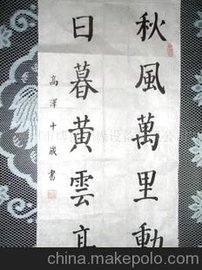 秋風萬里動
日暮黃雲高
高澤十歲書
china.makepolo.com